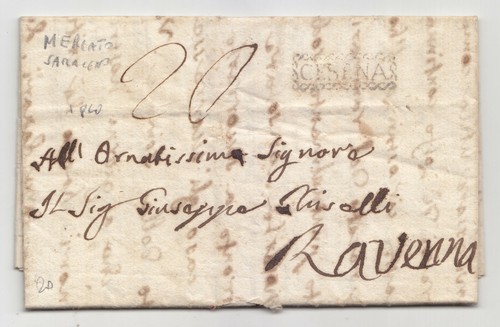 MERCATO
SARACENO
20
CESENA
All' Ornatissimo Signore
Il Sig Giuseppe Ghiselli
Ravenna
20